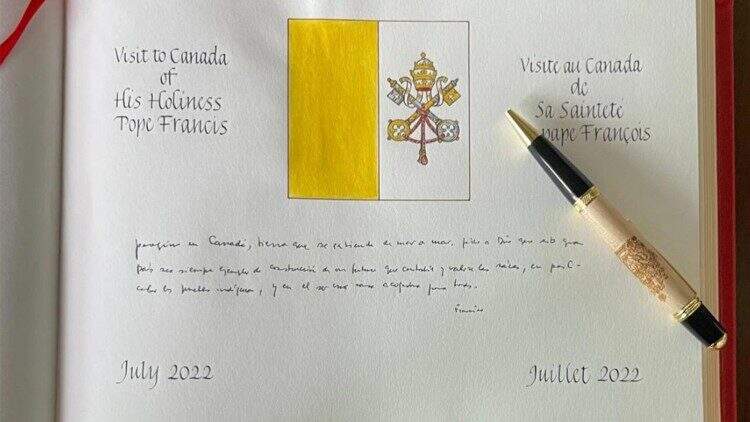 Visit to Canada
of
His Holiness
Pope Francis
Visite au Canada
de
Sa Sainteté
pape François
peregrino en Canadá, tierra que se extiende de mar a mar, pido a Dios que este gran
país sea siempre ejemplo de construcción de un futuro que custodie y valore las raíces, en parti-
cular los pueblos indígenas, y en el ser una casa acogedora para todos.
Francisco
July 2022
Juillet 2022